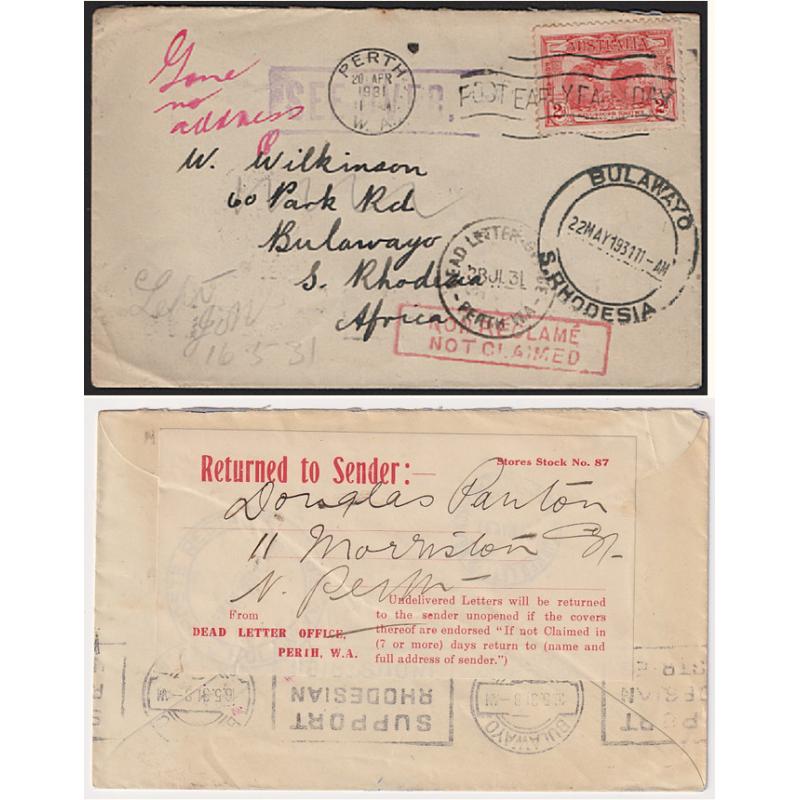 Gone
no
address
PERTH.
20 APR
1931
W. A.
POST EARLY EACH DAY
AUSTRALIA
2D
W. Wilkinson
60 Park Rd
Bulawayo
S. Rhodesia
Africa
BULAWAYO
22MAY193111-AM
S.RHODESIA
DEAD LETTER OFFICE
28 JL 31
PERTH W.A.
NON RECLAMÉ
NOT CLAIMED
Left
16 5 31
Returned to Sender:—
Stores Stock No. 87
Douglas Panton
11 Morriston St.
N. Perth
From
DEAD LETTER OFFICE,
PERTH, W.A.
Undelivered Letters will be returned
to the sender unopened if the covers
thereof are endorsed "If not Claimed in
(7 or more) days return to (name and
full address of sender.")
SUPPORT
RHODESIAN
BULAWAYO